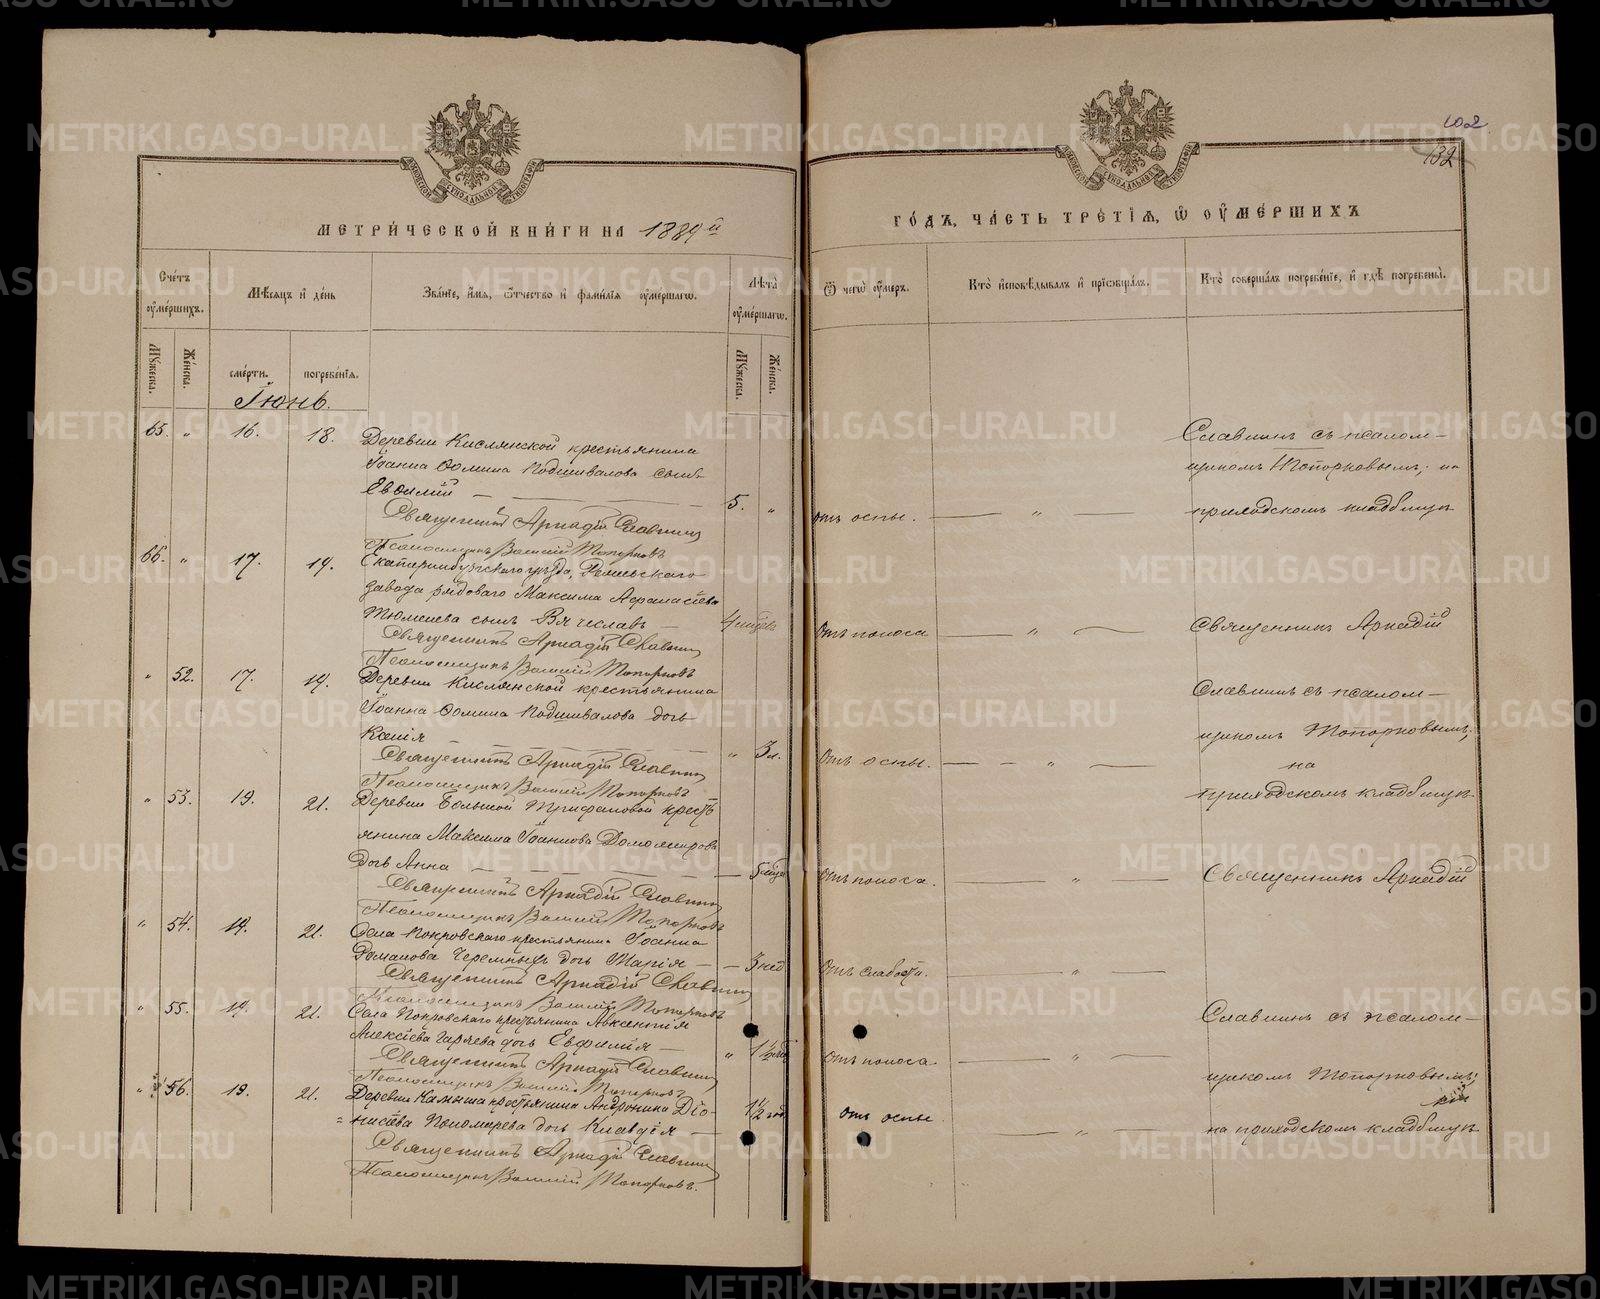 МЕТРИ́ЧЕСКОЙ КНИ́ГИ НА 1889й
Сче́тъ ᲂу҆ме́ршихъ.
Мѣ́сяцъ и҆ де́нь
Зва́нїе, и҆́мѧ, ѻ҆́тчество и҆ фами́лїѧ ᲂу҆ме́ршагѡ.
Лѣ́та ᲂу҆ме́ршагѡ.
Мꙋ́жеска.
Же́нска.
сме́рти.
погребе́нїѧ.
Мꙋ́жеска.
Же́нска.
Іюнь.
65. " 16. 18. Деревни Кислянской крестьянина
Іоанна Ѳомина Подшивалова сынъ
Евѳимій 5. "
Священникъ Аркадій Славнинъ
Псаломщикъ Василій Топорковъ
66. " 17. 19. Екатеринбургскаго уѣзда,
завода рядоваго Максима Аѳанасіева
Тюменева сынъ Вячеславъ 4
Священникъ Аркадій Славнинъ
Псаломщикъ Василій Топорковъ
" 52. 17. 19. Деревни Кислянской крестьянина
Іоанна Ѳомина Подшивалова дочь
" 3 л.
Священникъ Аркадій Славнинъ
Псаломщикъ Василій Топорковъ
" 53. 19. 21. Деревни Большой Трифановой кресть
янина Максима Іоаннова Домолирова
дочь Анна 5
Священникъ Аркадій Славнинъ
Псаломщикъ Василій Топорковъ
" 54. 19. 21. Села Покровскаго крестьянина Іоанна
Романова Черемныхъ дочь Марія 3 нед
Священникъ Аркадій Славнинъ
Псаломщикъ Василій Топорковъ
" 55. 19. 21. Села Покровскаго крестьянина Авксентія
Алексіева Гаряева дочь Евфимія " 1½
Священникъ Аркадій Славнинъ
Псаломщикъ Василій Топорковъ
" 56. 19. 21. Деревни Камыша крестьянина Андроника Діо-
= нисіева Пономарева дочь Клавдія 1½ год
Священникъ Аркадій Славнинъ
Псаломщикъ Василій Топорковъ.
102
132
ГО́ДЪ, ЧА́СТЬ ТРЕ́ТЇѦ, Ѡ҆ ОУ҆МЕ́РШИХЪ
Ѿ чегѡ̀ ᲂу҆́меръ.
Кто̀ и҆сповѣ́дывалъ и҆ прїѡбща́лъ.
Кто̀ соверша́лъ погребе́нїе, и҆ гдѣ̀ погребены̀.
Славнинъ съ псалом-
щикомъ Топорковымъ, на
отъ оспы. " приходскомъ кладбищѣ
Отъ поноса " Священникъ Аркадій
Славнинъ съ псалом-
щикомъ Топорковымъ,
Отъ оспы. " на
приходскомъ кладбищѣ
Отъ поноса. " Священникъ Аркадій
Отъ слабости. "
Славнинъ съ псалом-
Отъ поноса "
щикомъ Топорковымъ,
отъ оспы.
" на приходскомъ кладбищѣ
METRIKI.GASO-URAL.RU